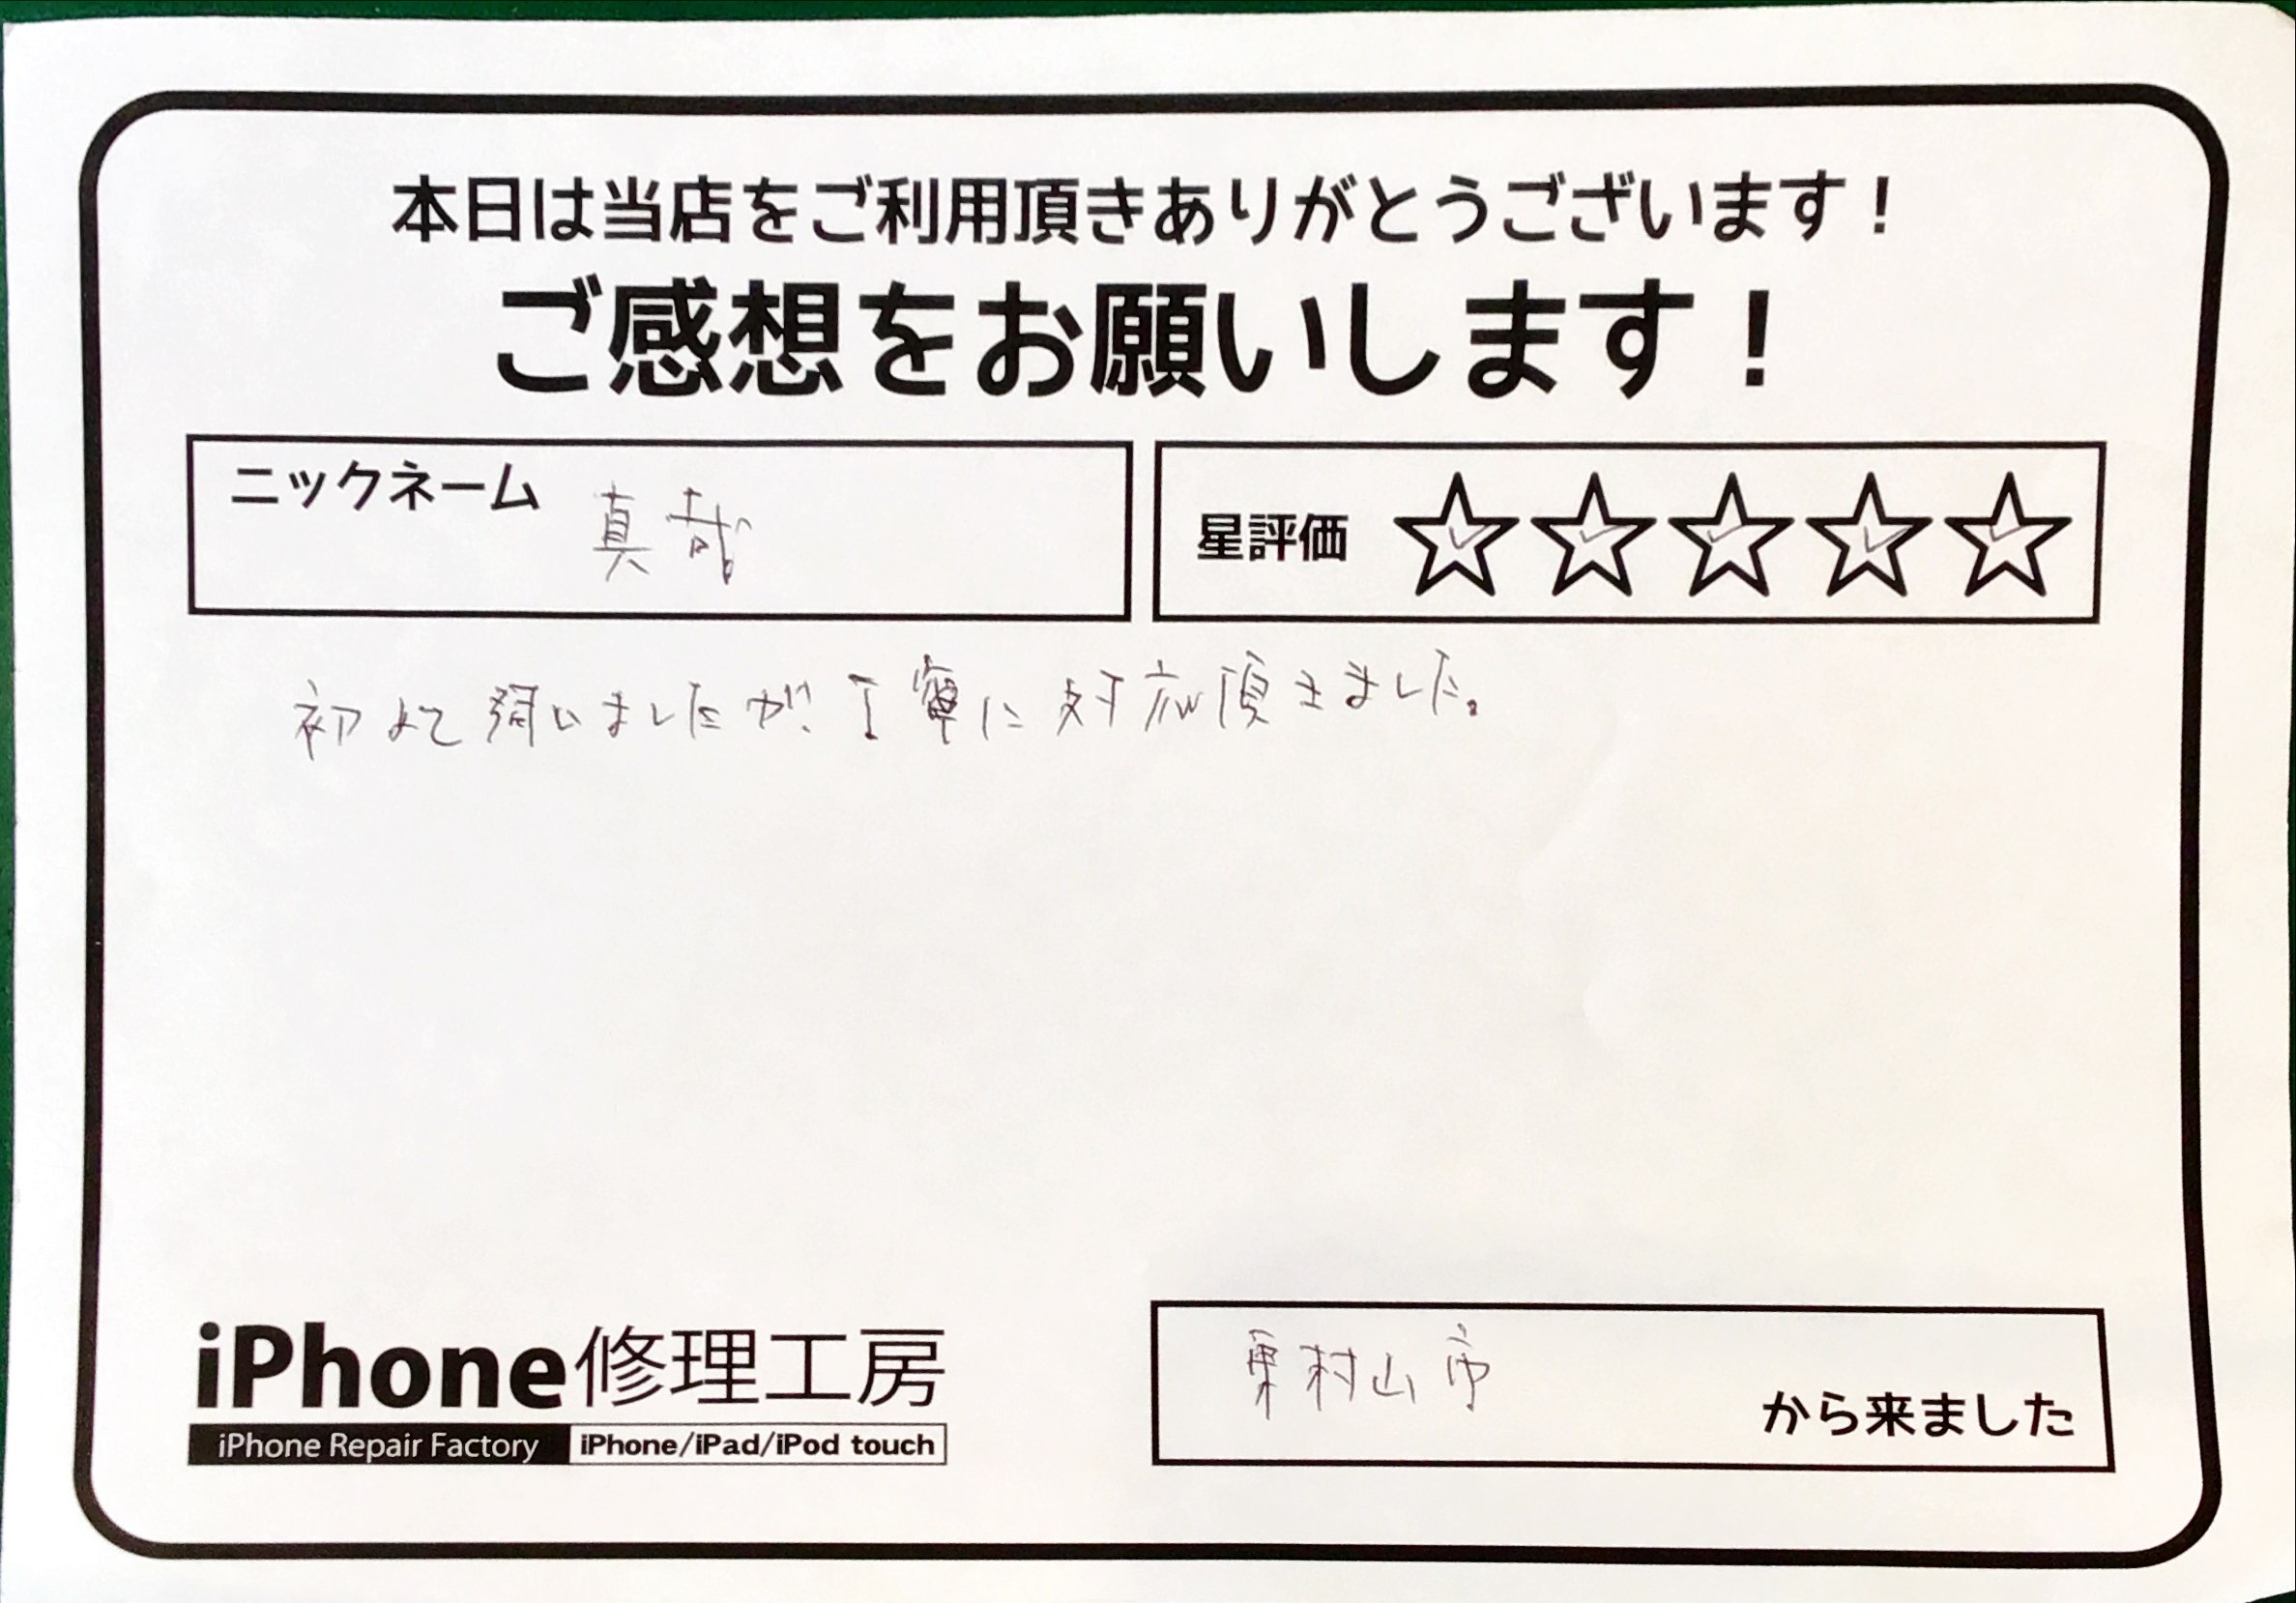 本日は当店をご利用頂きありがとうございます！
ご感想をお願いします！
ニックネーム 真哉
星評価 ☆☆☆☆☆
初めて伺いましたが、丁寧に対応頂きました。
iPhone修理工房
iPhone Repair Factory iPhone/iPad/iPod touch
東村山市 から来ました